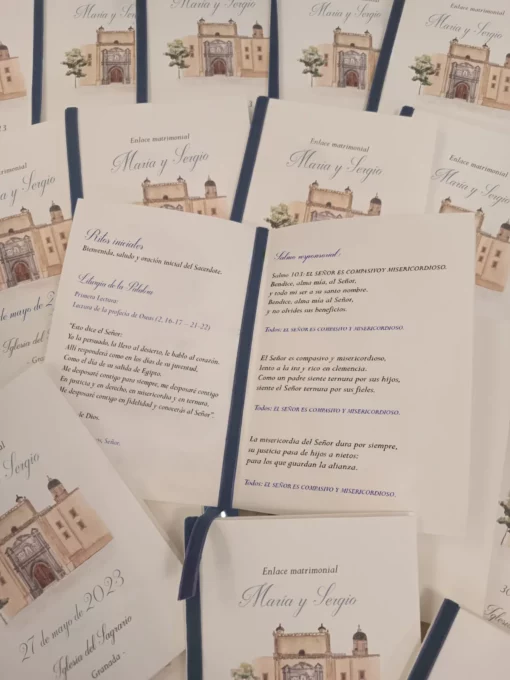 María y Sergio
María y Sergio
María y Sergio
3
Enlace matrimonial
María y Sergio
Enlace matrimonial
María y Sergio
Enlace matrimonial
María y Sergio
Enlace matrimonial
María y Sergio
Ritos iniciales
Bienvenida, saludo y oración inicial del Sacerdote.
Liturgia de la Palabra
Primera Lectura:
Lectura de la profecía de Oseas (2, 16-17 – 21-22)
"Esto dice el Señor:
Yo la persuado, la llevo al desierto, le hablo al corazón.
Allí responderá como en los días de su juventud,
Como el día de su salida de Egipto.
Me desposaré contigo para siempre, me desposaré contigo
En justicia y en derecho, en misericordia y en ternura,
Me desposaré contigo en fidelidad y conocerás al Señor".
de Dios.
Señor.
Salmo responsorial:
Salmo 103: EL SEÑOR ES COMPASIVO Y MISERICORDIOSO.
Bendice, alma mía, al Señor,
y todo mi ser a su santo nombre.
Bendice, alma mía, al Señor,
y no olvides sus beneficios.
Todos: EL SEÑOR ES COMPASIVO Y MISERICORDIOSO.
El Señor es compasivo y misericordioso,
lento a la ira y rico en clemencia.
Como un padre siente ternura por sus hijos,
siente el Señor ternura por sus fieles.
Todos: EL SEÑOR ES COMPASIVO Y MISERICORDIOSO.
La misericordia del Señor dura por siempre,
su justicia pasa de hijos a nietos:
para los que guardan la alianza.
Todos: EL SEÑOR ES COMPASIVO Y MISERICORDIOSO.
de mayo de 2
Iglesia del S
Gran
Sergio
27 de mayo de 2023
Iglesia del Sagrario
- Granada -
Enlace matrimonial
María y Sergio
Iglesia